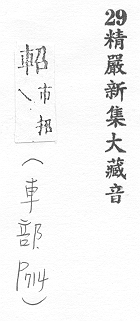 29精嚴新集大藏音
軺市招
(車部 P714)